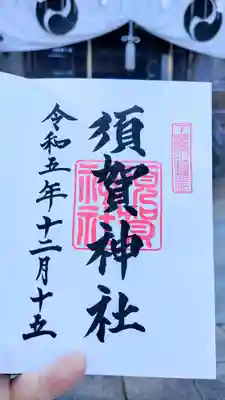 須賀神社
令和五年十二月十五